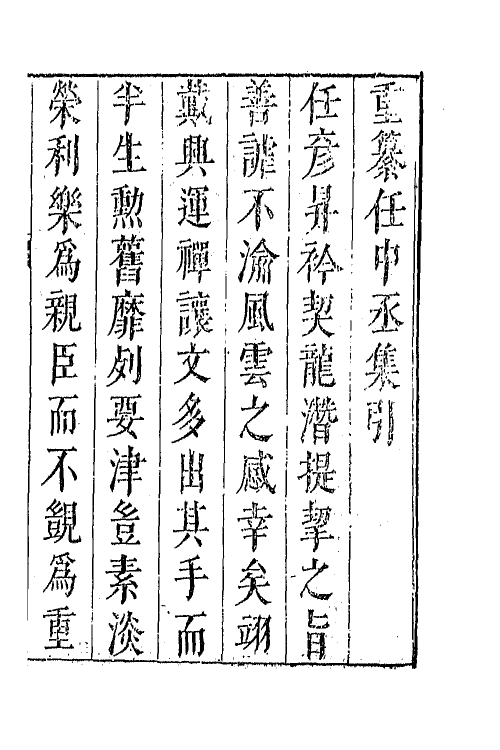 重纂任中丞集引
任彥昇衿契龍潛提挈之旨
善謔不渝風雲之感幸矣翊
戴興運禪讓文多出其手而
半生勲舊靡列要津豈素淡
榮利樂爲親臣而不覬爲重